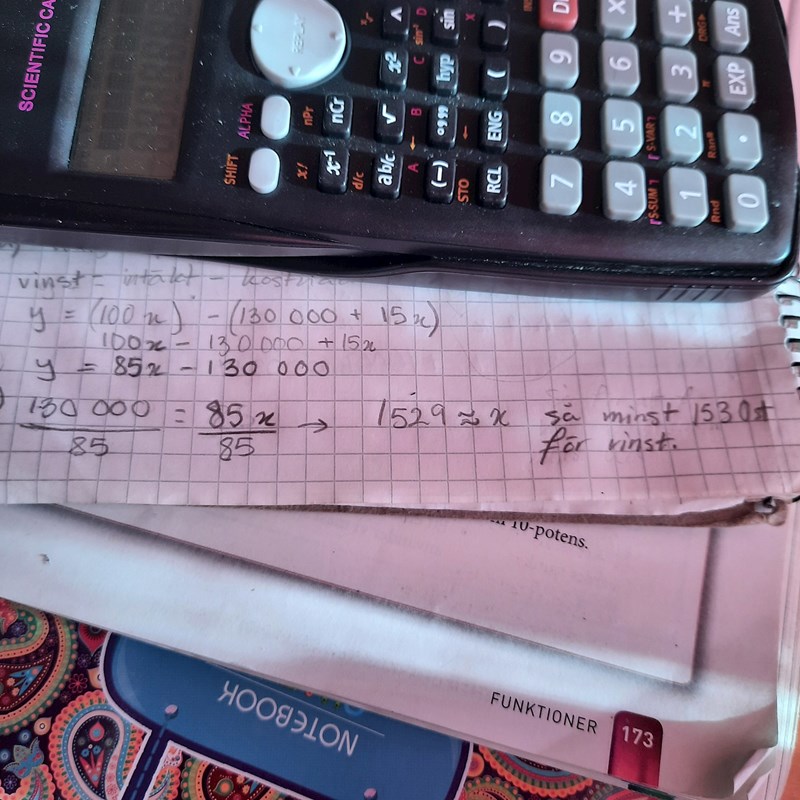 SCIENTIFIC CA
SHIFT
ALPHA
x!
nPr
x⁻¹
nCr
d/c
ab/c
√
x²
^
A
B
C
sin⁻¹
D
(-)
°'"
hyp
sin
STO
←
X
RCL
ENG
(
)
7
8
9
4
5
6
X
S-SUM
S-VAR
1
2
3
+
Rnd
Ran#
π
DRG▸
0
•
EXP
Ans
vinst = intäkt - kostnad
y = (100x) - (130 000 + 15x)
100x - 130 000 + 15x
y = 85x - 130 000
130 000/85 = 85x/85 → 1529 ≈ x så minst 1530st
för vinst.
10-potens.
FUNKTIONER 173
NOTEBOOK